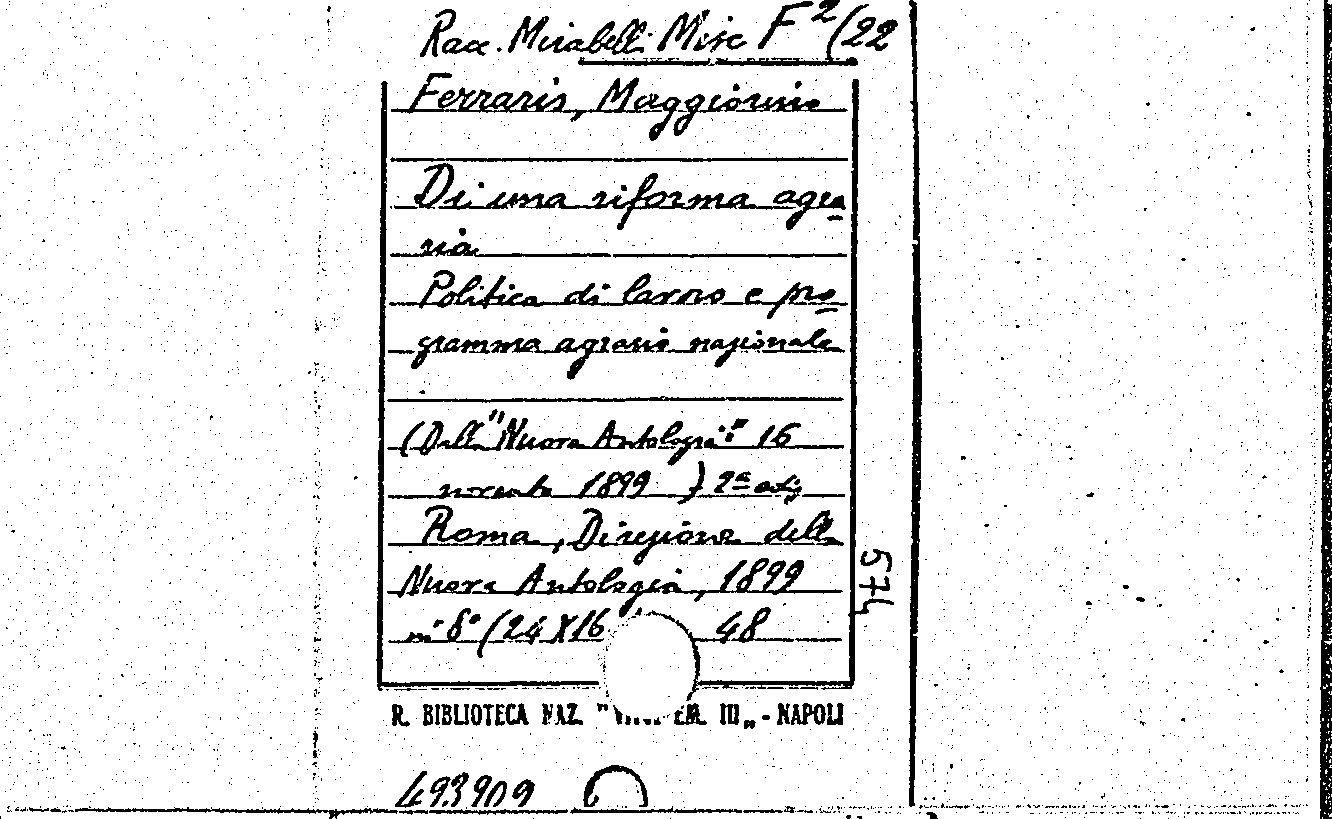 Racc. Mirabelli Misc F²/22
Ferraris, Maggiorino
Di una riforma agra
ria
Politica di lavoro e pro
gramma agrario nazionale
(Dalla "Nuova Antologia" 16
novembre 1899 ) 2ª ediz
Roma, Direzione della
Nuova Antologia, 1899
in 8° (24 X 16 48
574
R. BIBLIOTECA NAZ. " EM. III „ - NAPOLI
493909